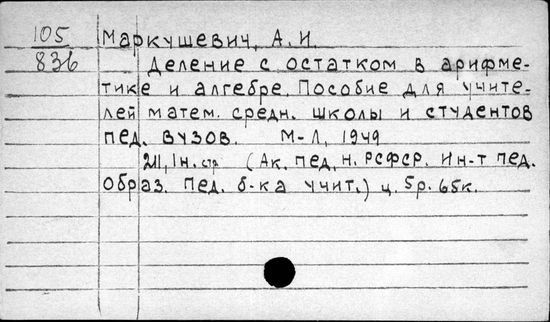 105 Маркушевич, А.И.
836 Деление с остатком в арифме-
тике и алгебре. Пособие для учите-
лей матем. средн. школы и студентов
пед. вузов. М-Л, 1949
211, 1н. стр (Ак. пед. н. РСФСР. Ин-т пед.
образ. Пед. б-ка учит.) ц. 5р. 65к.